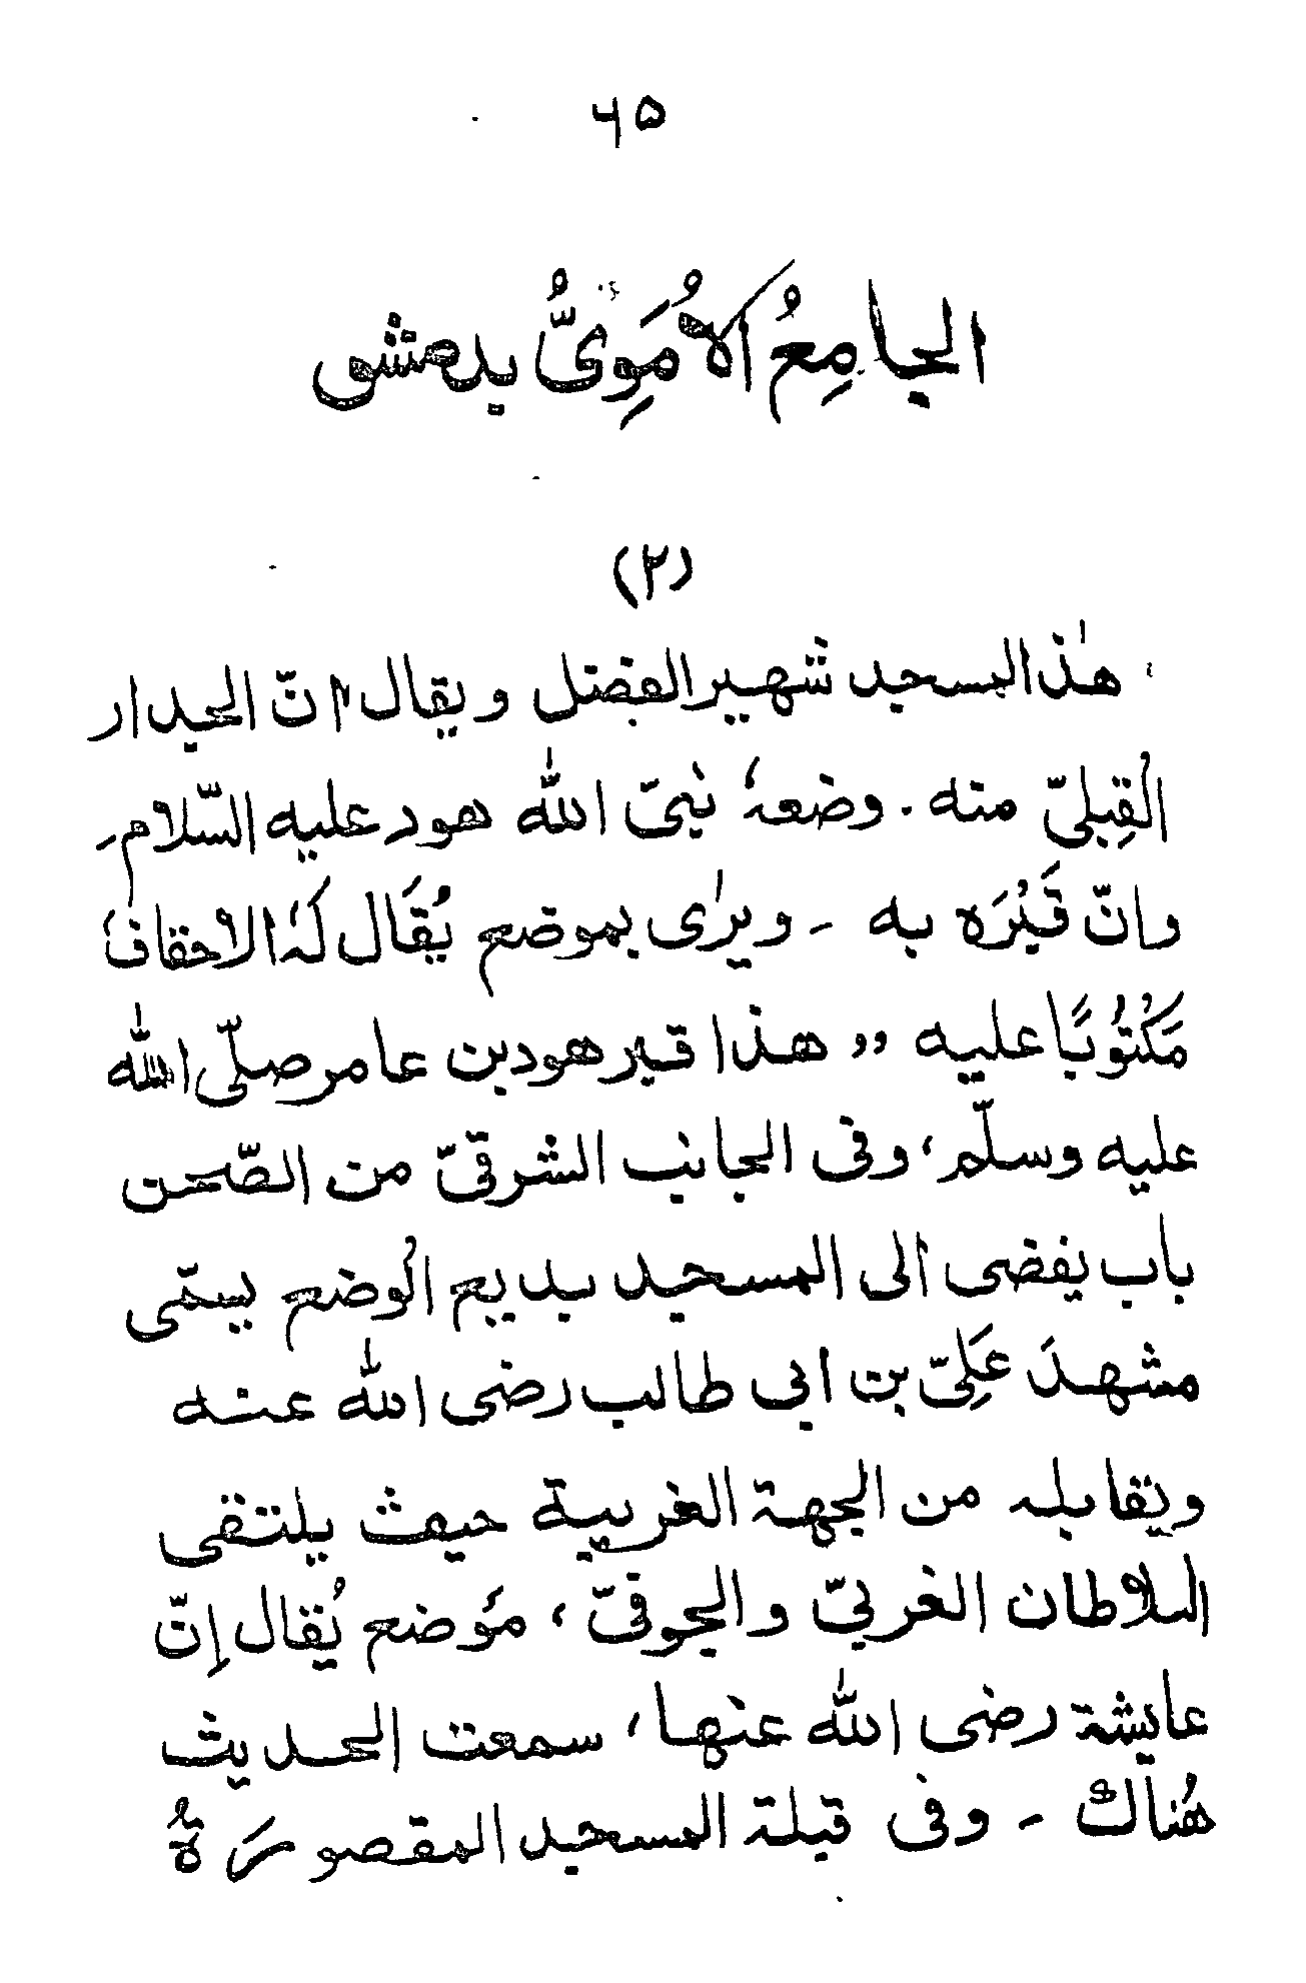 ۶۵
الجامِعُ الاُمَوِىُّ بدمشق
(۲)
هٰذا المسجد شهير الفضل ويقال انّ الجدار
القِبليّ منه . وضعهٗ نبيّ اللّٰه هود عليه السّلام ۔
وانّ قَبْرَه به ۔ ويرٰى بموضع يُقَال لَهُ الاحقاف
مَكْتُوبًا عليه ,, هذا قبر هود بن عامر صلّى اللّٰه
عليه وسلّم، وفى الجانب الشرقيّ من الصّحن
باب يفضى الى المسجد بديع الوضع يسمّى
مشهدَ عَلِيّ بن ابي طالب رضى اللّٰه عنه
ويقابله من الجهة الغربية حيث يلتقى
البلاطان الغربيّ والجوفيّ ، مؤضع يُقال إنّ
عايشة رضى اللّٰه عنها، سمعت الحديث
هُناك ۔ وفى قبلة المسجد المقصورَةُ